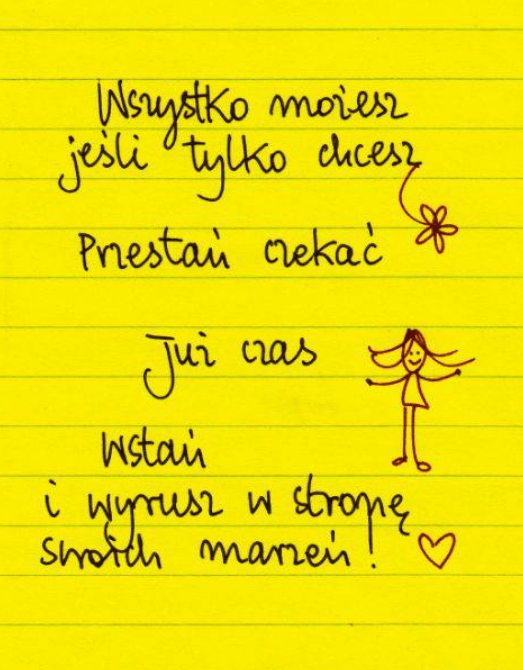 Wszystko możesz
jeśli tylko chcesz
Przestań czekać
Już czas
Wstań
i wyrusz w stronę
swoich marzeń!